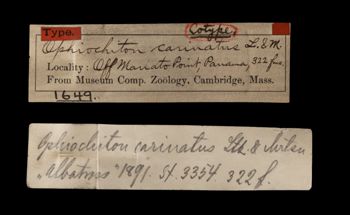 Type. Cotype
Ophiochiton carinatus L. & M.
Locality: Off Mariato Point Panama, 322 fms.
From Museum Comp. Zoölogy, Cambridge, Mass.
1649.
Ophiochiton carinatus Ltk. &
"Albatross" 1891. St. 3354. 322 f.